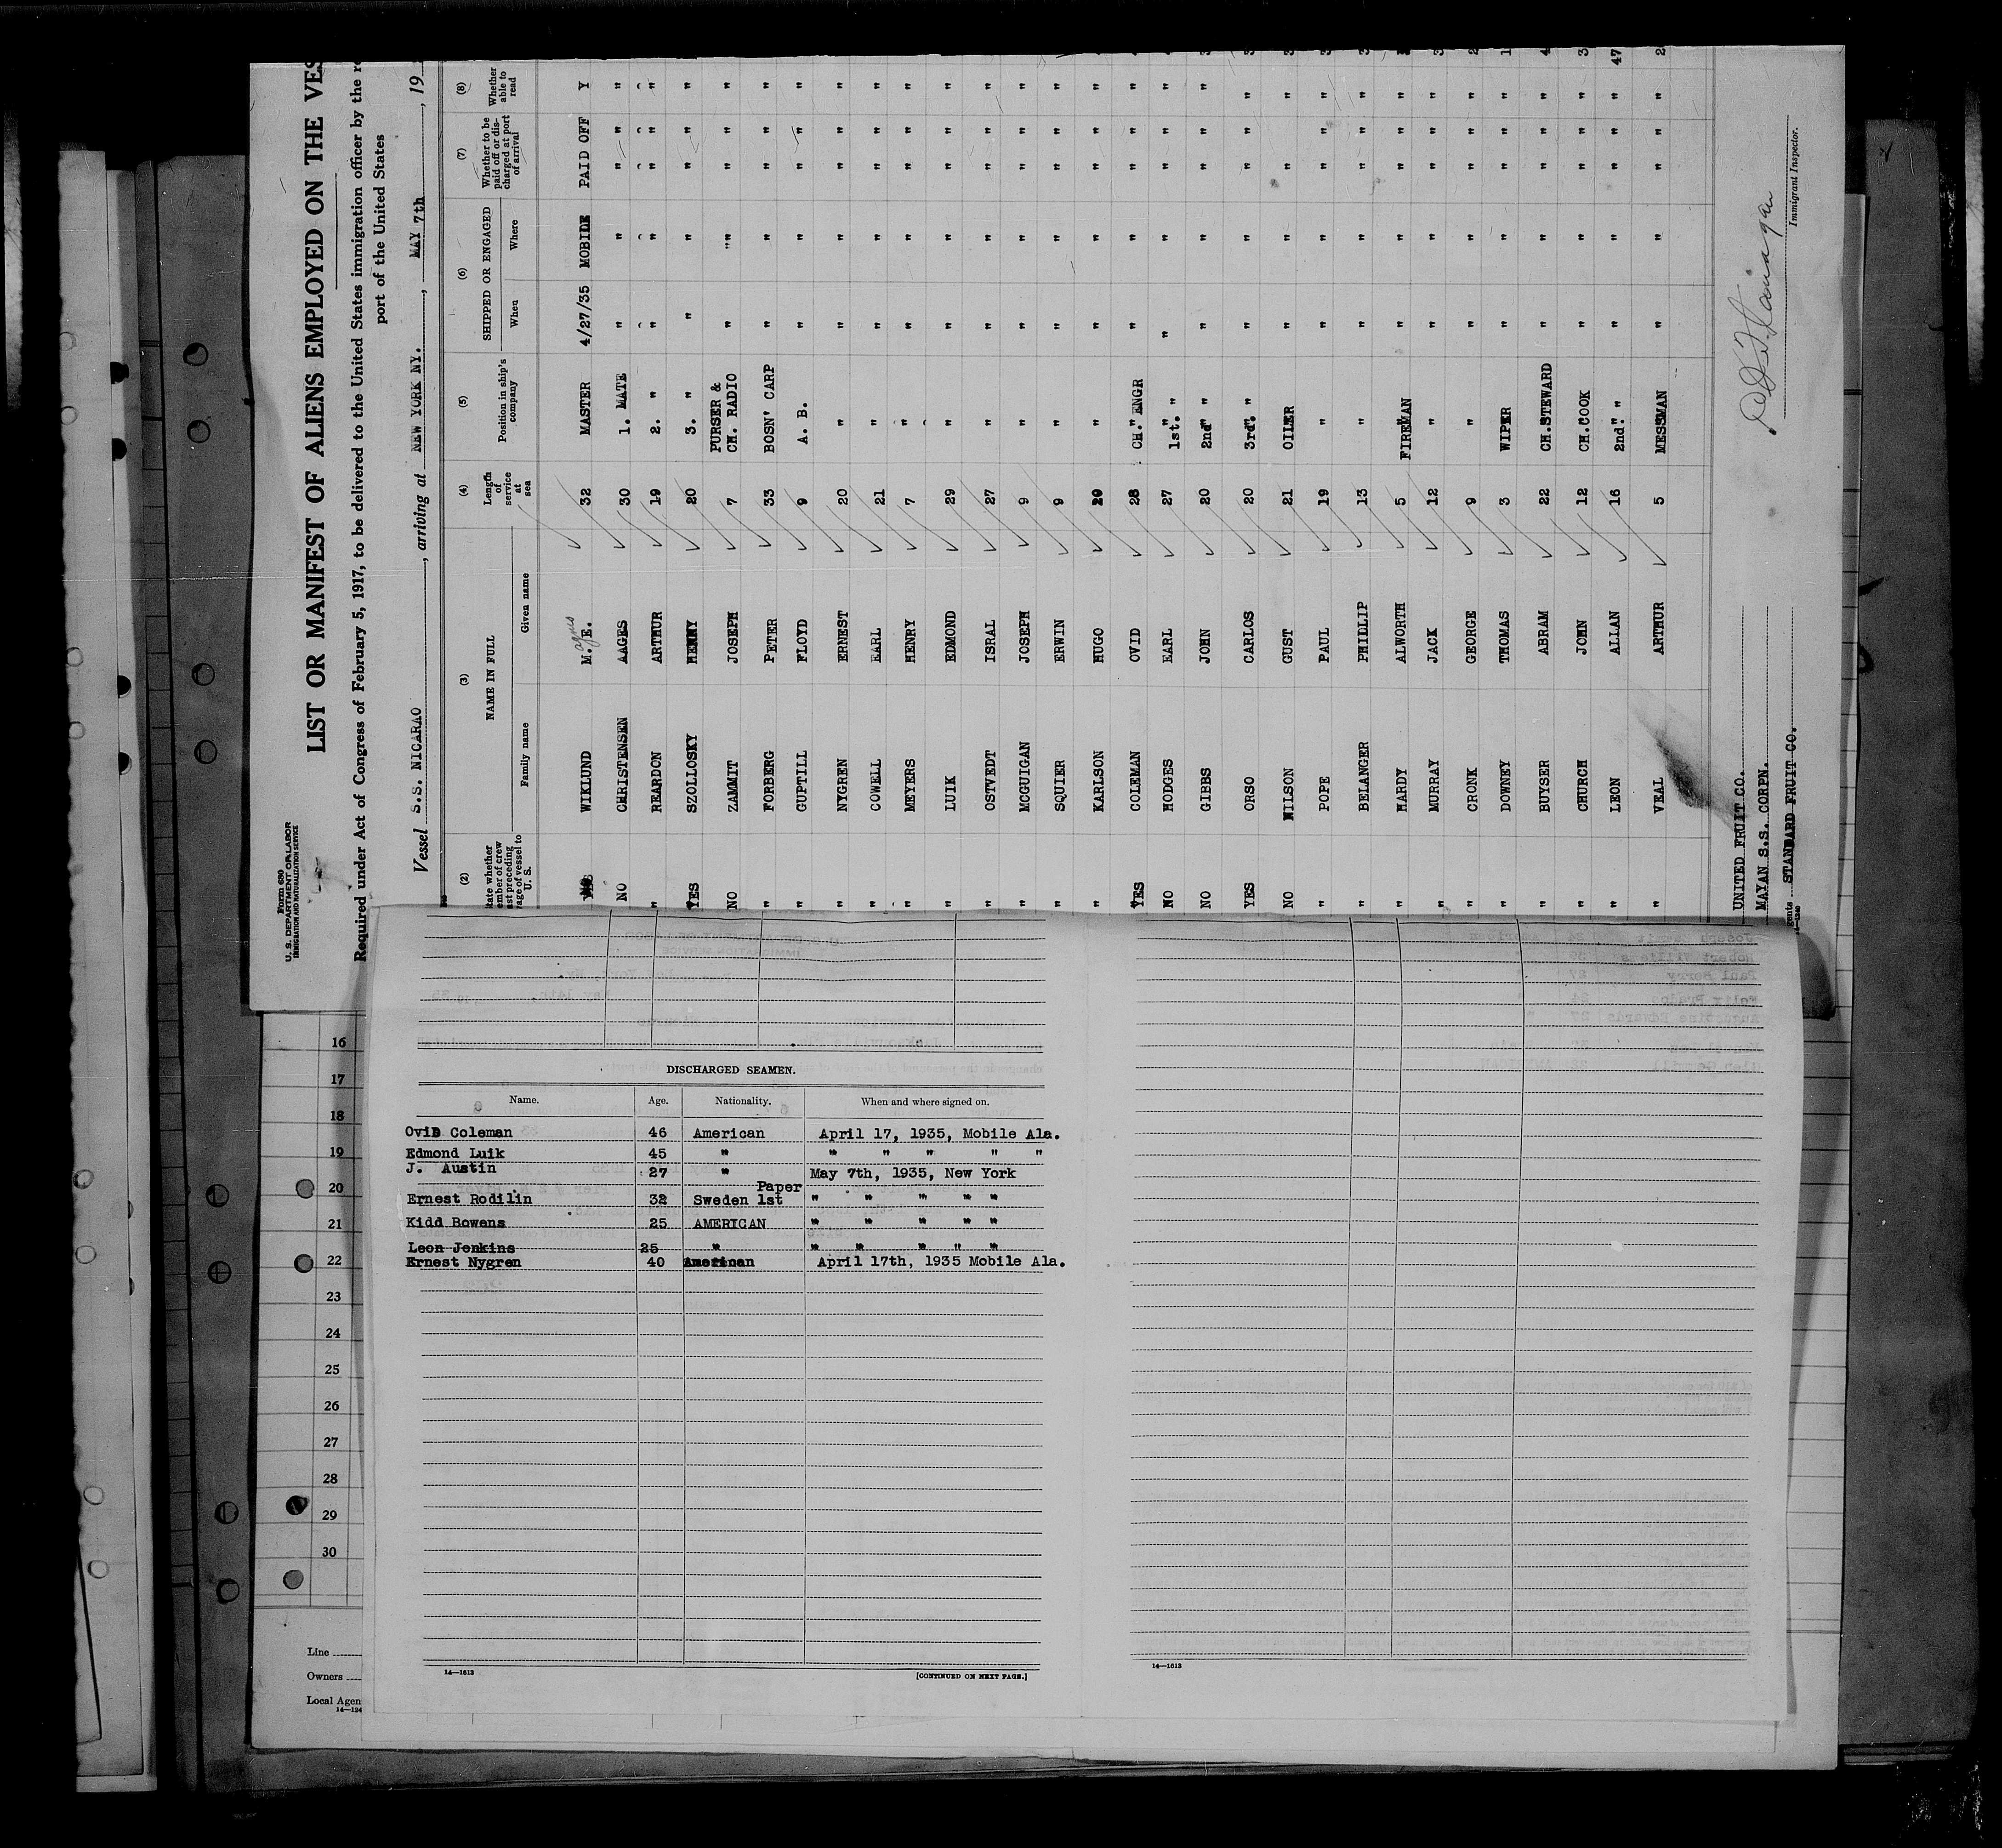 Form 680
U. S. DEPARTMENT OF LABOR
IMMIGRATION AND NATURALIZATION SERVICE
LIST OR MANIFEST OF ALIENS EMPLOYED ON THE VES
Required under Act of Congress of February 5, 1917, to be delivered to the United States immigration officer by the re
port of the United States
Vessel S.S. NICARAO, arriving at NEW YORK NY., MAY 7th, 19
(2) (3) (4) (5) (6) (7) (8)
NAME IN FULL
Family name Given name
Length of service at sea
Position in ship's company
SHIPPED OR ENGAGED
When Where
Whether to be paid off or discharged at port of arrival
Whether able to read
WIKLUND M.E. 32 MASTER 4/27/35 MOBILE PAID OFF Y
NO CHRISTENSEN AAGES 30 1. MATE " " " " "
" REARDON ARTHUR 19 2. " " " " " "
YES SZOLLOSKY HENRY 20 3. " " " " " "
NO ZAMMIT JOSEPH 7 PURSER & CH. RADIO " "" " " "
" FORBERG PETER 33 BOSN' CARP " " " " "
" GUPTILL FLOYD 9 A. B. " " " " "
" NYGREN ERNEST 20 " " " " " "
" COWELL EARL 21 " " " " " "
" MEYERS HENRY 7 " " " " " "
" LUIK EDMOND 29 " " " " " "
" OSTVEDT ISRAL 27 " " " " " "
" MCGUIGAN JOSEPH 9 " " " " " "
" SQUIER ERWIN 9 " " " " " "
" KARLSON HUGO " " " " " "
YES COLEMAN OVID 28 CH. ENGR " " " " "
NO HODGES EARL 27 1st. " " " " " "
NO GIBBS JOHN 20 2nd " " " " " "
YES ORSO CARLOS 20 3rd. " " " " " "
NO NILSON GUST 21 OILER " " " " "
" POPE PAUL 19 " " " " " "
" BELANGER PHILLIP 13 " " " " " "
" HARDY ALWORTH 5 FIREMAN " " " " "
" MURRAY JACK 12 " " " " " "
" CRONK GEORGE 9 " " " " " "
" DOWNEY THOMAS 3 WIPER " " " " "
" BUYSER ABRAM 22 CH.STEWARD " " " " "
" CHURCH JOHN 12 CH.COOK " " " " "
" LEON ALLAN 16 2nd. " " " " " " 47
" VEAL ARTHUR 5 MESSMAN " " " " "
UNITED FRUIT CO.
MAYAN S.S. CORPN.
gents STANDARD FRUIT CO.
Immigrant Inspector.
DISCHARGED SEAMEN.
Name. Age. Nationality. When and where signed on.
OviD Coleman 46 American April 17, 1935, Mobile Ala.
Edmond Luik 45 " " " " " "
J. Austin 27 " May 7th, 1935, New York
Paper
Ernest Rodilin 32 Sweden 1st " " " " "
Kidd Bowens 25 AMERICAN " " " " "
Leon Jenkins 25 " " " " " "
Ernest Nygren 40 American April 17th, 1935 Mobile Ala.
14—1613
[CONTINUED ON NEXT PAGE.]
14—1613
16
17
18
19
20
21
22
23
24
25
26
27
28
29
30
Line
Owners
Local Agen
14—124